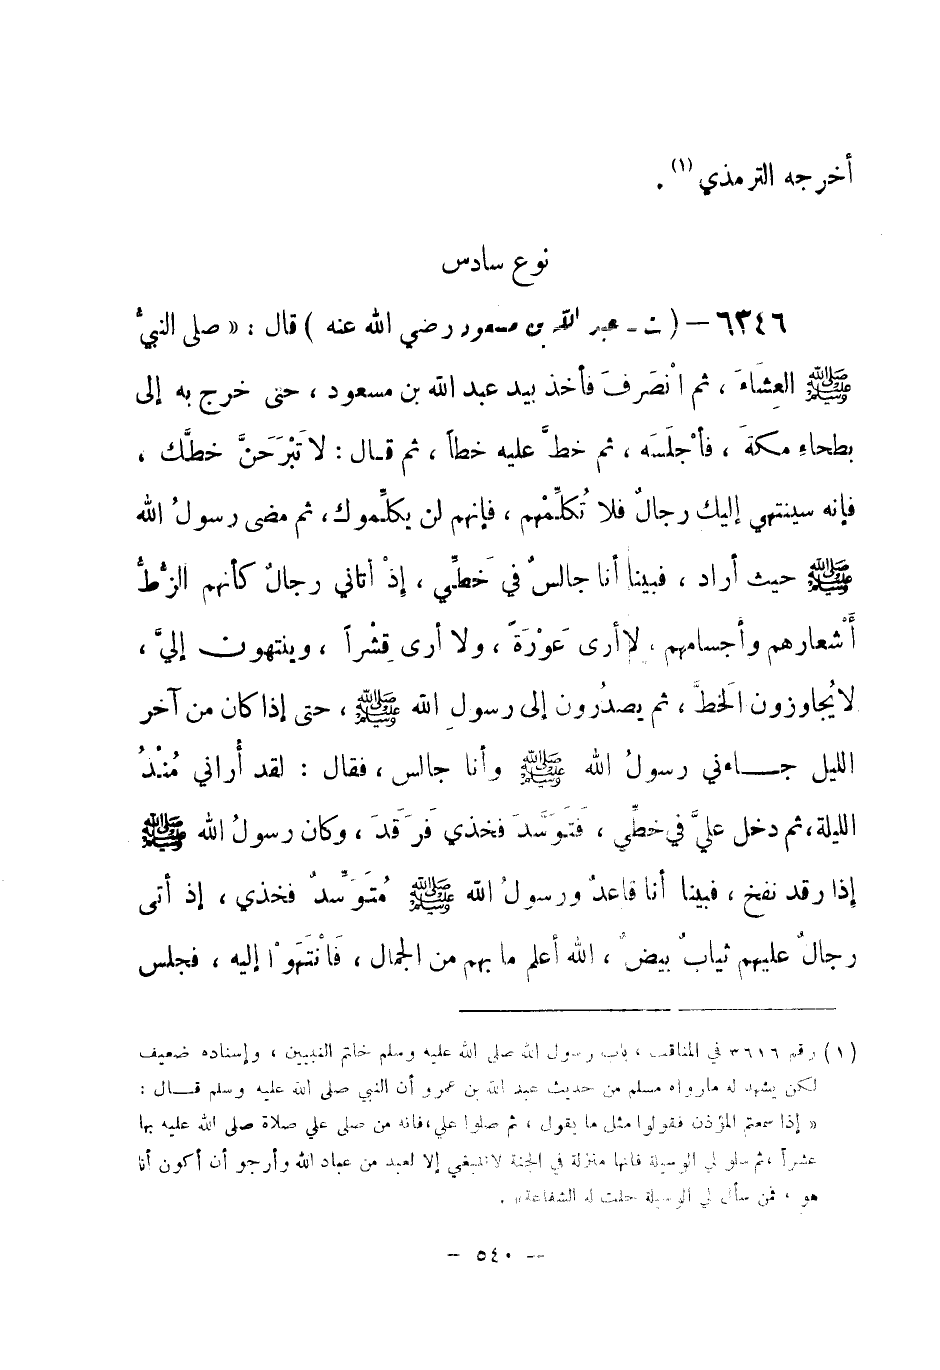 أخرجه الترمذي (١) .
نوع سادس
٦٣٤٦ – ( ت – عبد الله بن مسعود رضي الله عنه ) قال : « صلى النبيُّ
ﷺ العِشَاءَ ، ثم انْصَرفَ فأخذ بيد عبد الله بن مسعود ، حتى خرج به إلى
بطحاءِ مكةَ ، فأجْلَسَه ، ثم خطَّ عليه خطاً ، ثم قال : لا تَبْرَحَنَّ خطَّك ،
فإنه سينتهي إليك رجالٌ فلا تُكلِّمْهم ، فإنهم لن يكلِّموك ، ثم مضى رسولُ الله
ﷺ حيث أراد ، فبينا أنا جالسٌ في خَطِّي ، إذْ أتاني رجالٌ كأنهم الزُّطُّ
أَشعارهم وأجسامهم ، لا أرى عَوْرَةً ، ولا أرى قِشْراً ، وينتهون إليَّ ،
لا يُجاوزون الَخطَّ ، ثم يصدُرون إلى رسولِ الله ﷺ ، حتى إذا كان من آخر
الليل جاءني رسولُ الله ﷺ وأنا جالس ، فقال : لقد أُراني مُنْذُ
الليلة ، ثم دخل عليَّ في خطِّي ، فَتَوَسَّدَ فخذي فَرَقَدَ ، وكان رسولُ الله ﷺ
إذا رقد نفخ ، فبينا أنا قاعدٌ ورسولُ الله ﷺ مُتَوَسِّدٌ فخذي ، إذ أتى
رجالٌ عليهم ثيابٌ بيضٌ ، الله أعلم ما بهم من الجمال ، فَانْتَهَوْا إليه ، فجلس
(١) رقم ٣٦١٦ في المناقب ، باب رسول الله صلى الله عليه وسلم خاتم النبيين ، وإسناده ضعيف
لكن يشهد له مارواه مسلم من حديث عبد الله بن عمرو أن النبي صلى الله عليه وسلم قال :
« إذا سمعتم المؤذن فقولوا مثل ما يقول ، ثم صلوا علي ، فانه من صلى علي صلاة صلى الله عليه بها
عشراً ، ثم سلو لي الوسيلة فانها منزلة في الجنة لاتنبغي إلا لعبد من عباد الله وأرجو أن أكون أنا
هو ، فمن سأل لي الوسيلة حلت له الشفاعة» .
– ٥٤٠ –